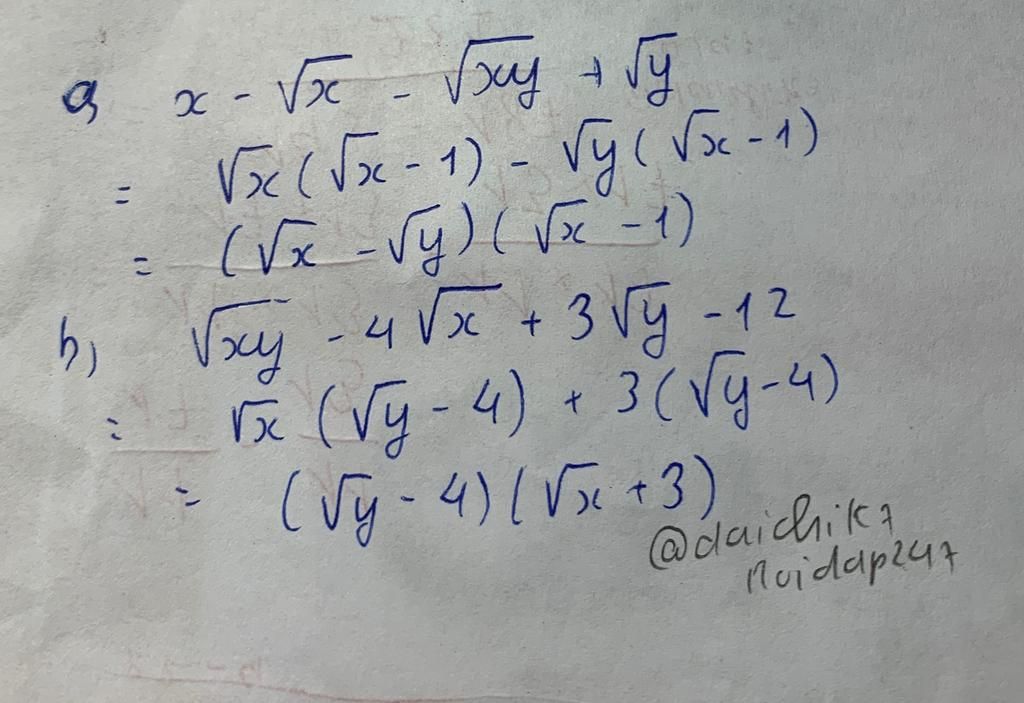 a, x - √x - √xy + √y
= √x (√x - 1) - √y (√x - 1)
= (√x - √y) (√x - 1)
b, √xy - 4√x + 3√y - 12
= √x (√y - 4) + 3(√y - 4)
= (√y - 4) (√x + 3)
@daichik7
hoidap247